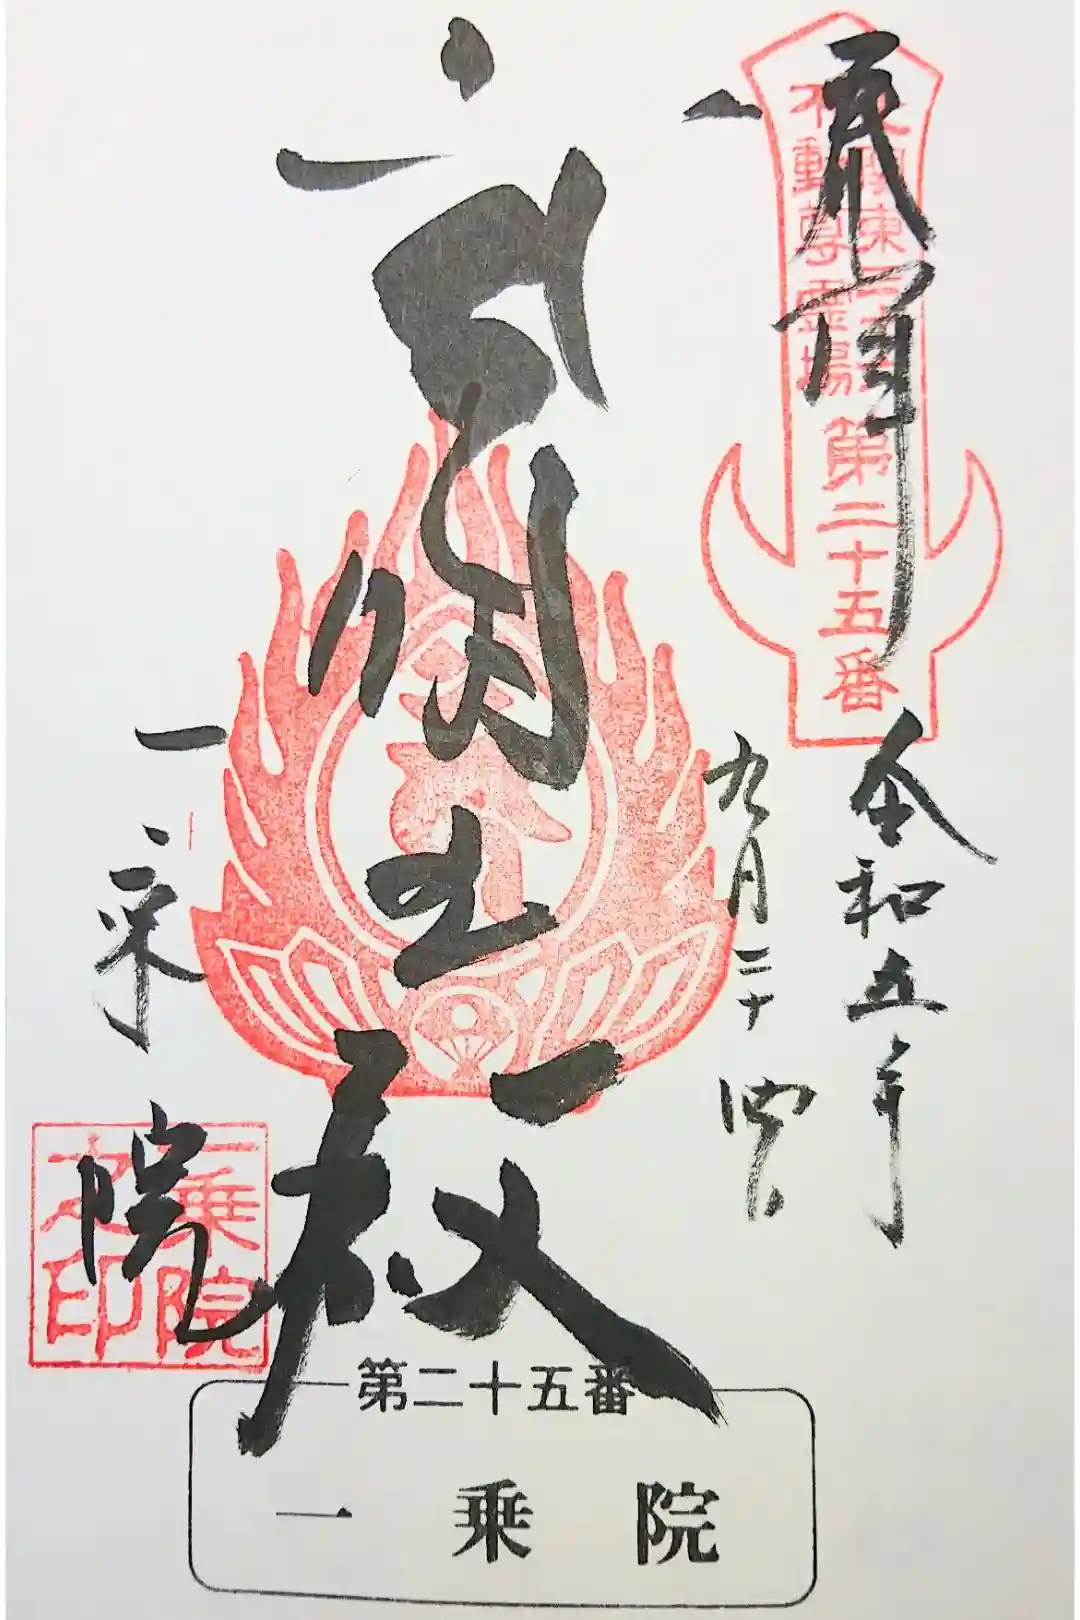 奉拝
北関東三十六
不動尊霊場
第二十五番
令和五年
九月二十四日
不動明王
一乗院
一乗院
之印
第二十五番
一乗院